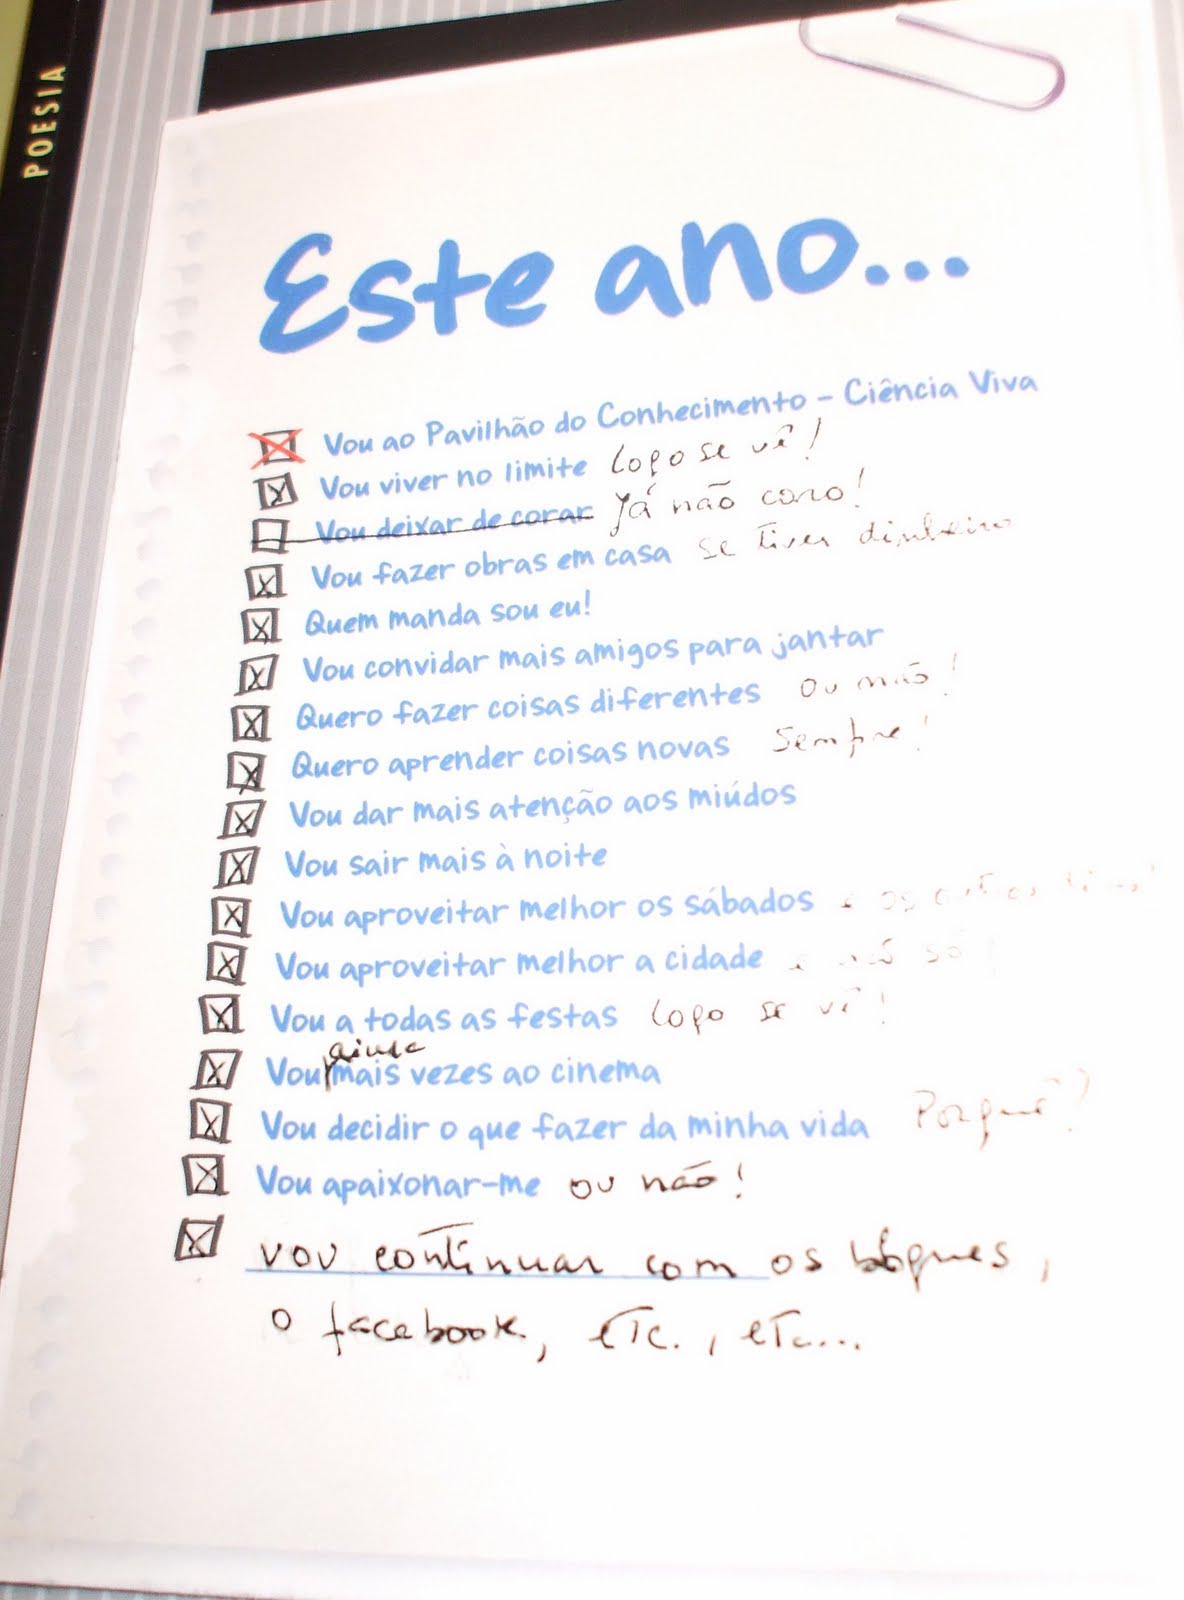 POESIA
Este ano...
Vou ao Pavilhão do Conhecimento - Ciência Viva
Vou viver no limite logo se vê!
Vou deixar de corar Já não coro!
Vou fazer obras em casa se tiver dinheiro
Quem manda sou eu!
Vou convidar mais amigos para jantar
Quero fazer coisas diferentes ou não!
Quero aprender coisas novas sempre!
Vou dar mais atenção aos miúdos
Vou sair mais à noite
Vou aproveitar melhor os sábados e os outros dias!
Vou aproveitar melhor a cidade e não só!
Vou a todas as festas logo se vê!
Vou ainda mais vezes ao cinema
Vou decidir o que fazer da minha vida Porquê?
Vou apaixonar-me ou não!
vou continuar com os blogues,
o facebook, etc., etc...